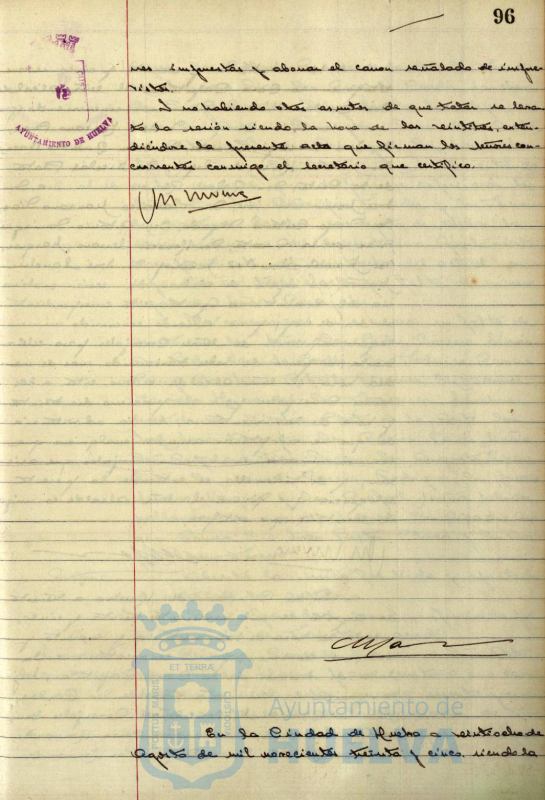 96
AYUNTAMIENTO DE HUELVA
nes impuestas y abonan el canon señalado de impre-
vistos.
Y no habiendo otros asuntos de que tratar se levan-
tó la sesión siendo la hora de las veintitres, exten-
diéndose la presente acta que firman los señores con-
currentes conmigo el secretario que certifico.
ET TERRÆ
PORTUS MARIS
CUSTODIA
Ayuntamiento de
HUELVA
En la Ciudad de Huelva a veintiocho de
Agosto de mil novecientos treinta y cinco, siendo la